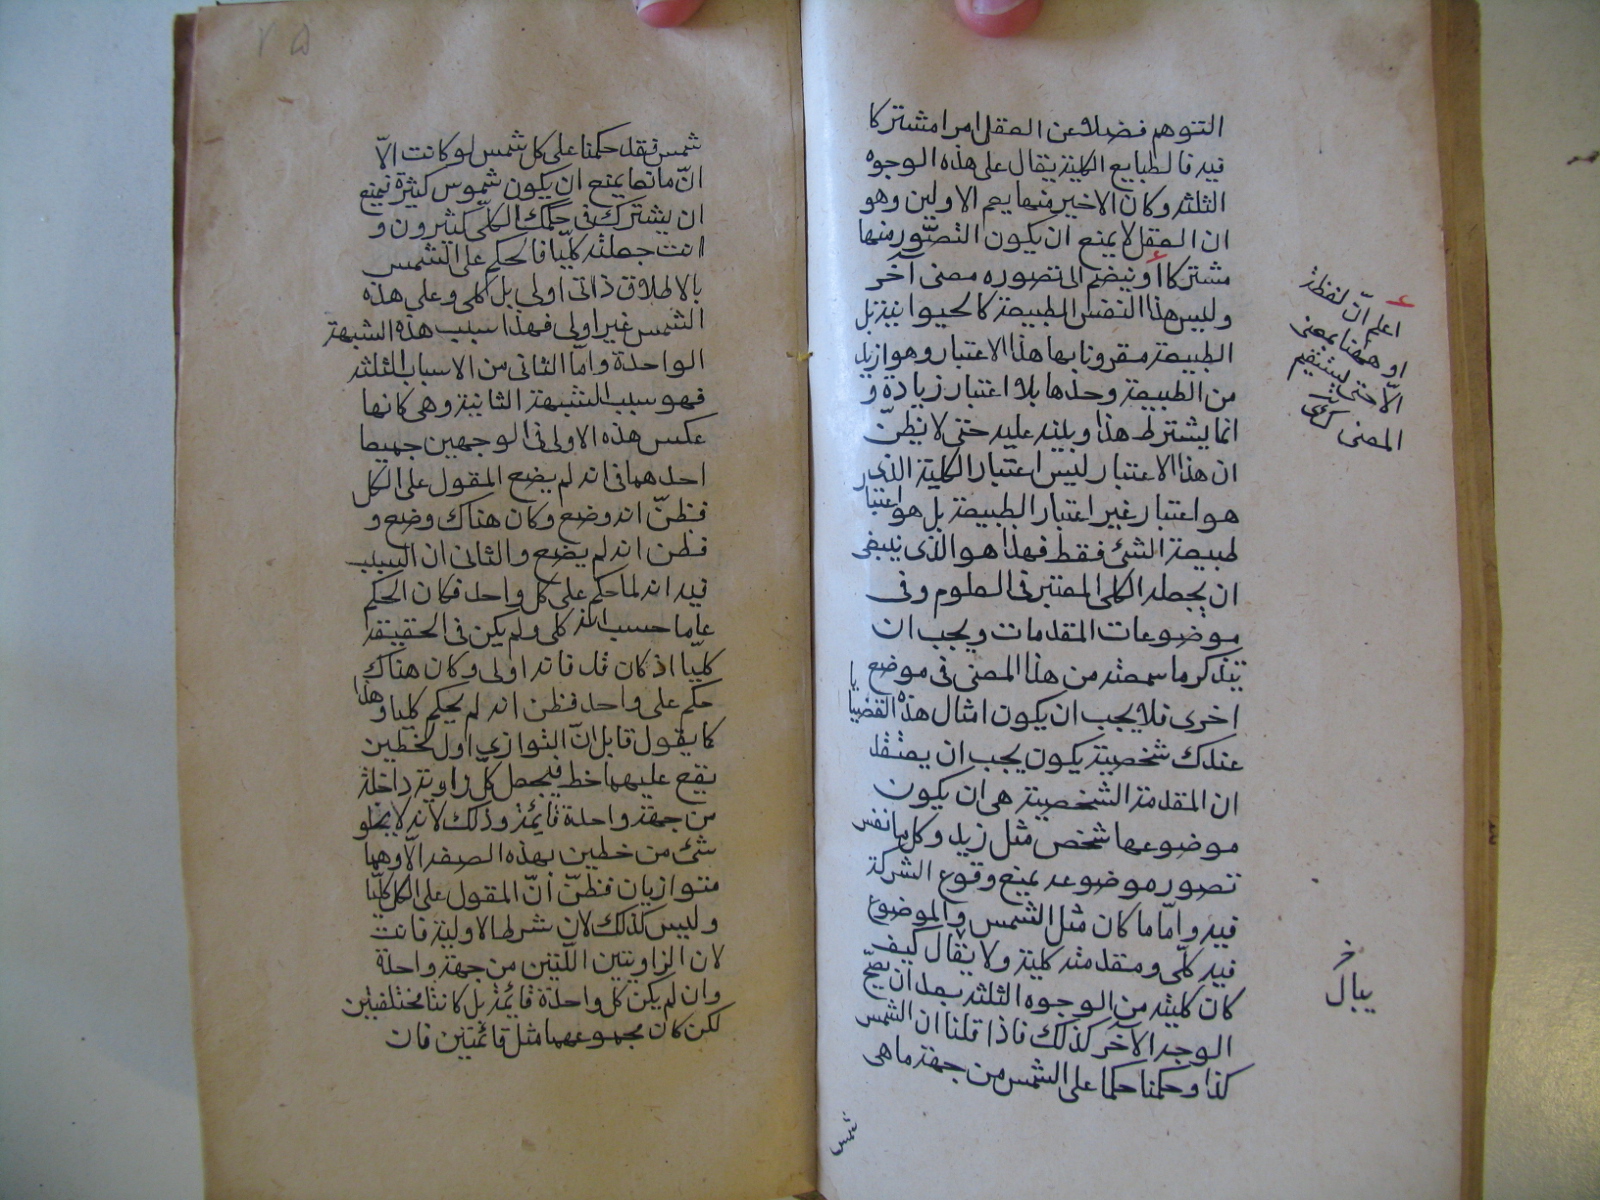 التوهم فضلا عن العقل امرا مشتركا
فيه فالطبايع الكلية يقال على هذه الوجوه
الثلثه وكان الاخير منها يعم الاولين وهو
ان العقل لا يمنع ان يكون التصور منها
مشتركا أو ينضم الى تصوره معنى آخر
وليس هذا النفس الطبيعة كالحيوانية بل
الطبيعة مقرونا بها هذا الاعتبار وهو ازيد
من الطبيعة وحدها بلا اعتبار زيادة و
انما يشترط هذا وبلية عليه حتى لا نظنّ
ان هذا الاعتبار ليس اعتبار الكلية الذى
هو اعتبار غير اعتبار الطبيعة بل هو اعتبار
طبيعة الشئ فقط فهذا هو الذى ينبغى
ان يجعله الكلى المعتبر فى العلوم وفى
موضوعات المقدمات ويجب ان
يتذكر ما سمعته من هذا المعنى فى موضع
اخرى فلا يجب ان يكون امثال هذه القضايا
عندك شخصية يكون يجب ان يعتقد
ان المقدمة الشخصية هى ان يكون
موضوعها شخص مثل زيد وكل ما نفس
تصور موضوعه يمنع وقوع الشركة
فيه وامّا ما كان مثل الشمس والموضوع
فيه كلّى ومقدمته كلية ولا يقال كيف
كان كليته من الوجوه الثلثه بعد ان يصحّ
الوجه الآخر كذلك فاذا قلنا ان الشمس
كذا وحكمنا حكما على الشمس من جهة ما هى
شمس
اعلم انّ لفظة
او ههنا بمعنى
الّا حتى يستقيم
المعنى
خ
يبال
شمس فقد حكمنا على كل شمس لو كانت الّا
انّ مانعا يمنع ان يكون شموس كثيرة فيمنع
ان يشترك فى حكمك الكلّى كثيرون و
انت جعلته كليّا فالحكم على الشمس
بالاطلاق ذاتى اولى بل كلى وعلى هذه
الشمس غير اولى فهذا سبب هذه الشبهة
الواحدة وامّا الثانى من الاسباب الثلثه
فهو سبب الشبهة الثانية وهى كانها
عكس هذه الاولى فى الوجهين جميعا
احدهما فى انه لم يضع المقول على الكل
فظنّ انه وضع وكان هناك وضع و
فظن انه لم يضع والثانى ان السبب
فيه انه لما حكم على كل واحد فكان الحكم
عاما حسب انه كلى ولم يكن فى الحقيقة
كليّا اذ كان قد فاته اولى وكان هناك
حكم على واحد فظن انه لم يحكم كليا وهذا
كما يقول قايل انّ التوازي اول لخطين
يقع عليهما خط فيجعل كلّ زاوية داخلة
من جهة واحدة قايمة وذلك لانه لا يخلو
شئ من خطين بهذه الصفه الّا وهما
متوازيان فظنّ انّ المقول على الكل كليّا
وليس كذلك لان شرط الاولية فانت
لان الزاويتين اللّتين من جهة واحدة
وان لم يكن كل واحدة قايمة بل كانتا مختلفتين
لكن كان مجموعهما مثل قائمتين فان